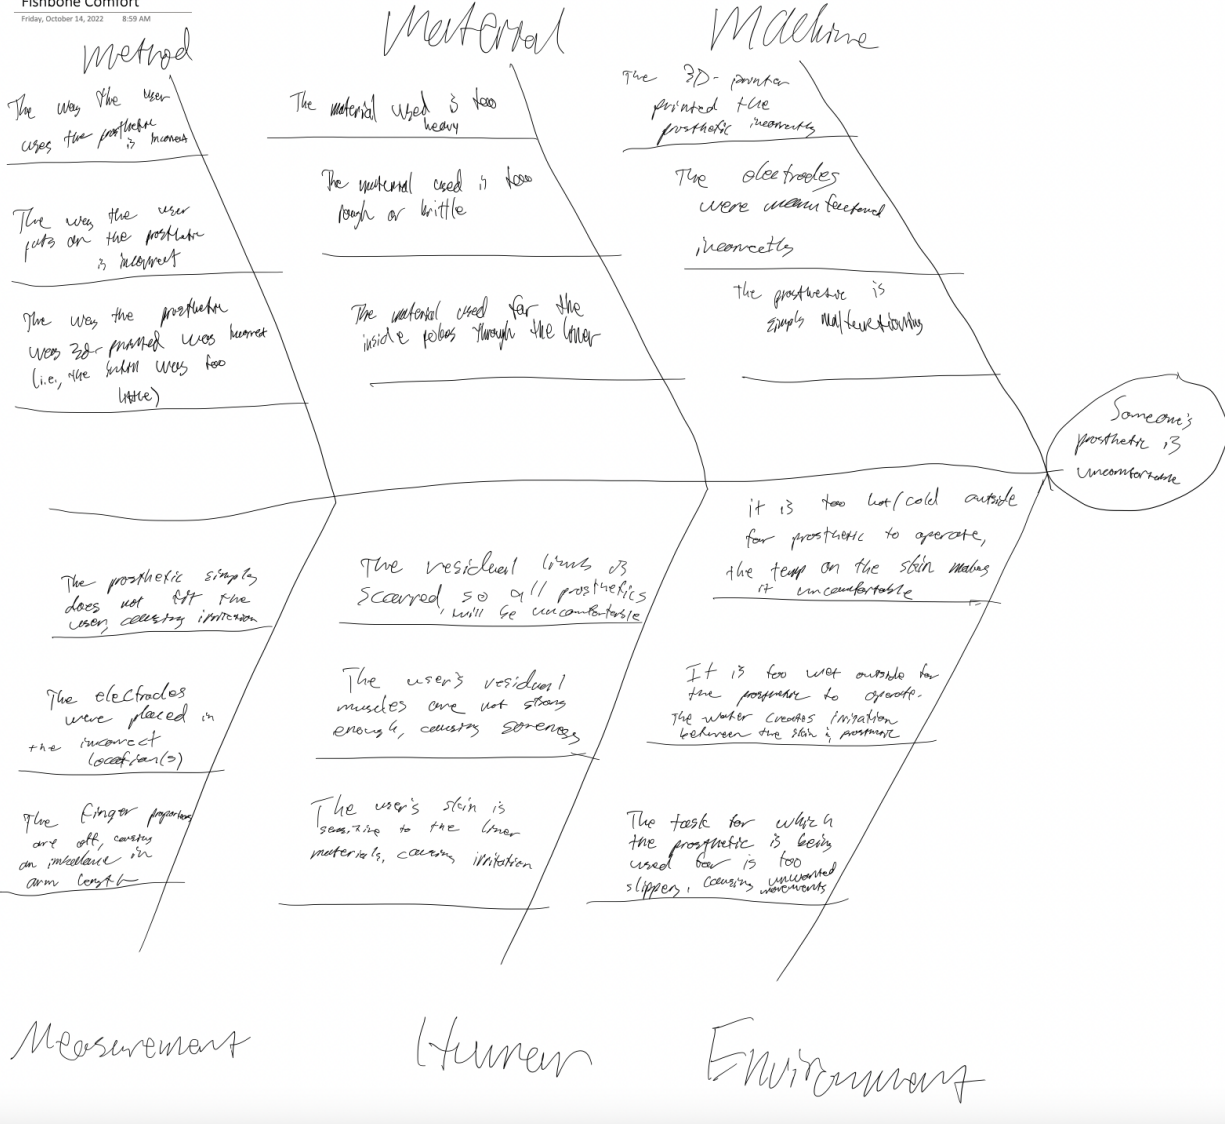 Fishbone Comfort
Friday, October 14, 2022 8:59 AM
Method
The way the user
uses the prosthetic
is incorrect
The way the user
puts on the prosthetic
is incorrect
The way the prosthetic
was 3d-printed was incorrect
(i.e., the infill was too
little)
Material
The material used is too
heavy
The material used is too
rough or brittle
The material used for the
inside pokes through the liner
Machine
The 3D-printer
printed the
prosthetic incorrectly
The electrodes
were manufactured
incorrectly
The prosthetic is
simply malfunctioning
Someone's
prosthetic is
uncomfortable
The prosthetic simply
does not fit the
user, causing irritation
The electrodes
were placed in
the incorrect
location(s)
The finger proportions
are off, causing
an imbalance in
arm length
Measurement
The residual limb is
scarred so all prosthetics
will be uncomfortable
The user's residual
muscles are not strong
enough, causing soreness
The user's skin is
sensitive to the liner
materials, causing irritation
Human
it is too hot/cold outside
for prosthetic to operate,
the temp on the skin making
it uncomfortable
It is too wet outside for
the prosthetic to operate.
The water creates irritation
between the skin & prosthetic
The task for which
the prosthetic is being
used for is too
slippery, causing unwanted
movements
Environment